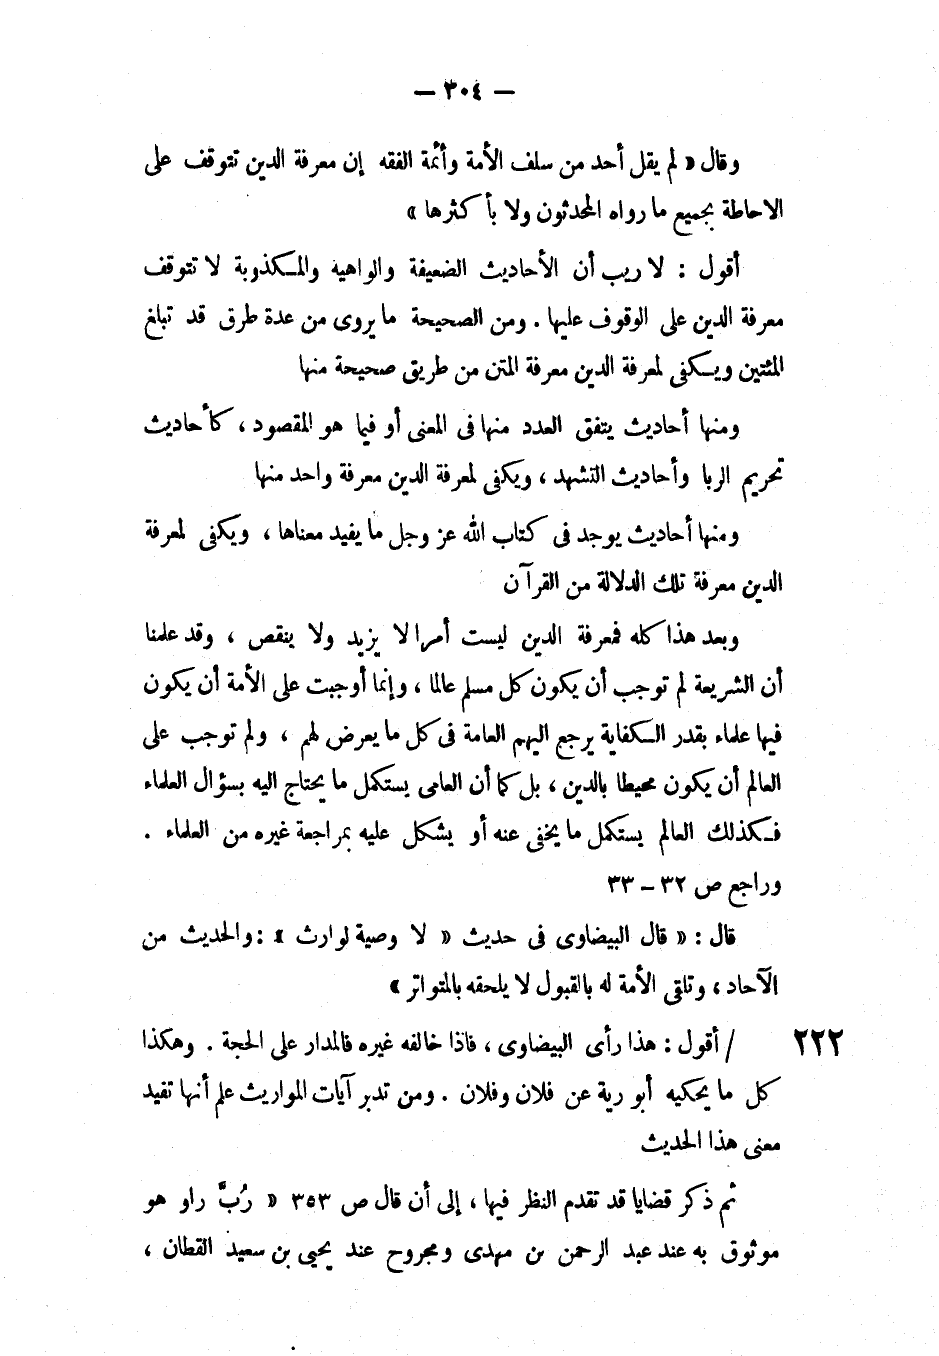 — ٣٠٤ —
وقال « لم يقل أحد من سلف الأمة وأئمة الفقه إن معرفة الدين تتوقف على
الاحاطة بجميع ما رواه المحدثون ولا بأكثرها »
أقول : لا ريب أن الأحاديث الضعيفة والواهيه والمكذوبة لا تتوقف
معرفة الدين على الوقوف عليها . ومن الصحيحة ما يروى من عدة طرق قد تبلغ
المئتين ويكفى لمعرفة الدين معرفة المتن من طريق صحيحة منها
ومنها أحاديث يتفق العدد منها فى المعنى أو فيما هو المقصود ، كأحاديث
تحريم الربا وأحاديث التشهد ، ويكفى لمعرفة الدين معرفة واحد منها
ومنها أحاديث يوجد فى كتاب الله عز وجل ما يفيد معناها ، ويكفى لمعرفة
الدين معرفة تلك الدلالة من القرآن
وبعد هذا كله فمعرفة الدين ليست أمرا لا يزيد ولا ينقص ، وقد علمنا
أن الشريعة لم توجب أن يكون كل مسلم عالما ، وإنما أوجبت على الأمة أن يكون
فيها علماء بقدر الكفاية يرجع اليهم العامة فى كل ما يعرض لهم ، ولم توجب على
العالم أن يكون محيطا بالدين ، بل كما أن العامى يستكمل ما يحتاج اليه بسؤال العلماء
فكذلك العالم يستكمل ما يخفى عنه أو يشكل عليه بمراجعة غيره من العلماء .
وراجع ص ٣٢ – ٣٣
قال : « قال البيضاوى فى حديث « لا وصية لوارث » : والحديث من
الآحاد ، وتلقى الأمة له بالقبول لا يلحقه بالمتواتر »
٢٢٢ / أقول : هذا رأى البيضاوى ، فاذا خالفه غيره فالمدار على الحجة . وهكذا
كل ما يحكيه أبو رية عن فلان وفلان . ومن تدبر آيات المواريث علم أنها تفيد
معنى هذا الحديث
ثم ذكر قضايا قد تقدم النظر فيها ، إلى أن قال ص ٣٥٣ « رُبَّ راو هو
موثوق به عند عبد الرحمن بن مهدى ومجروح عند يحيى بن سعيد القطان ،